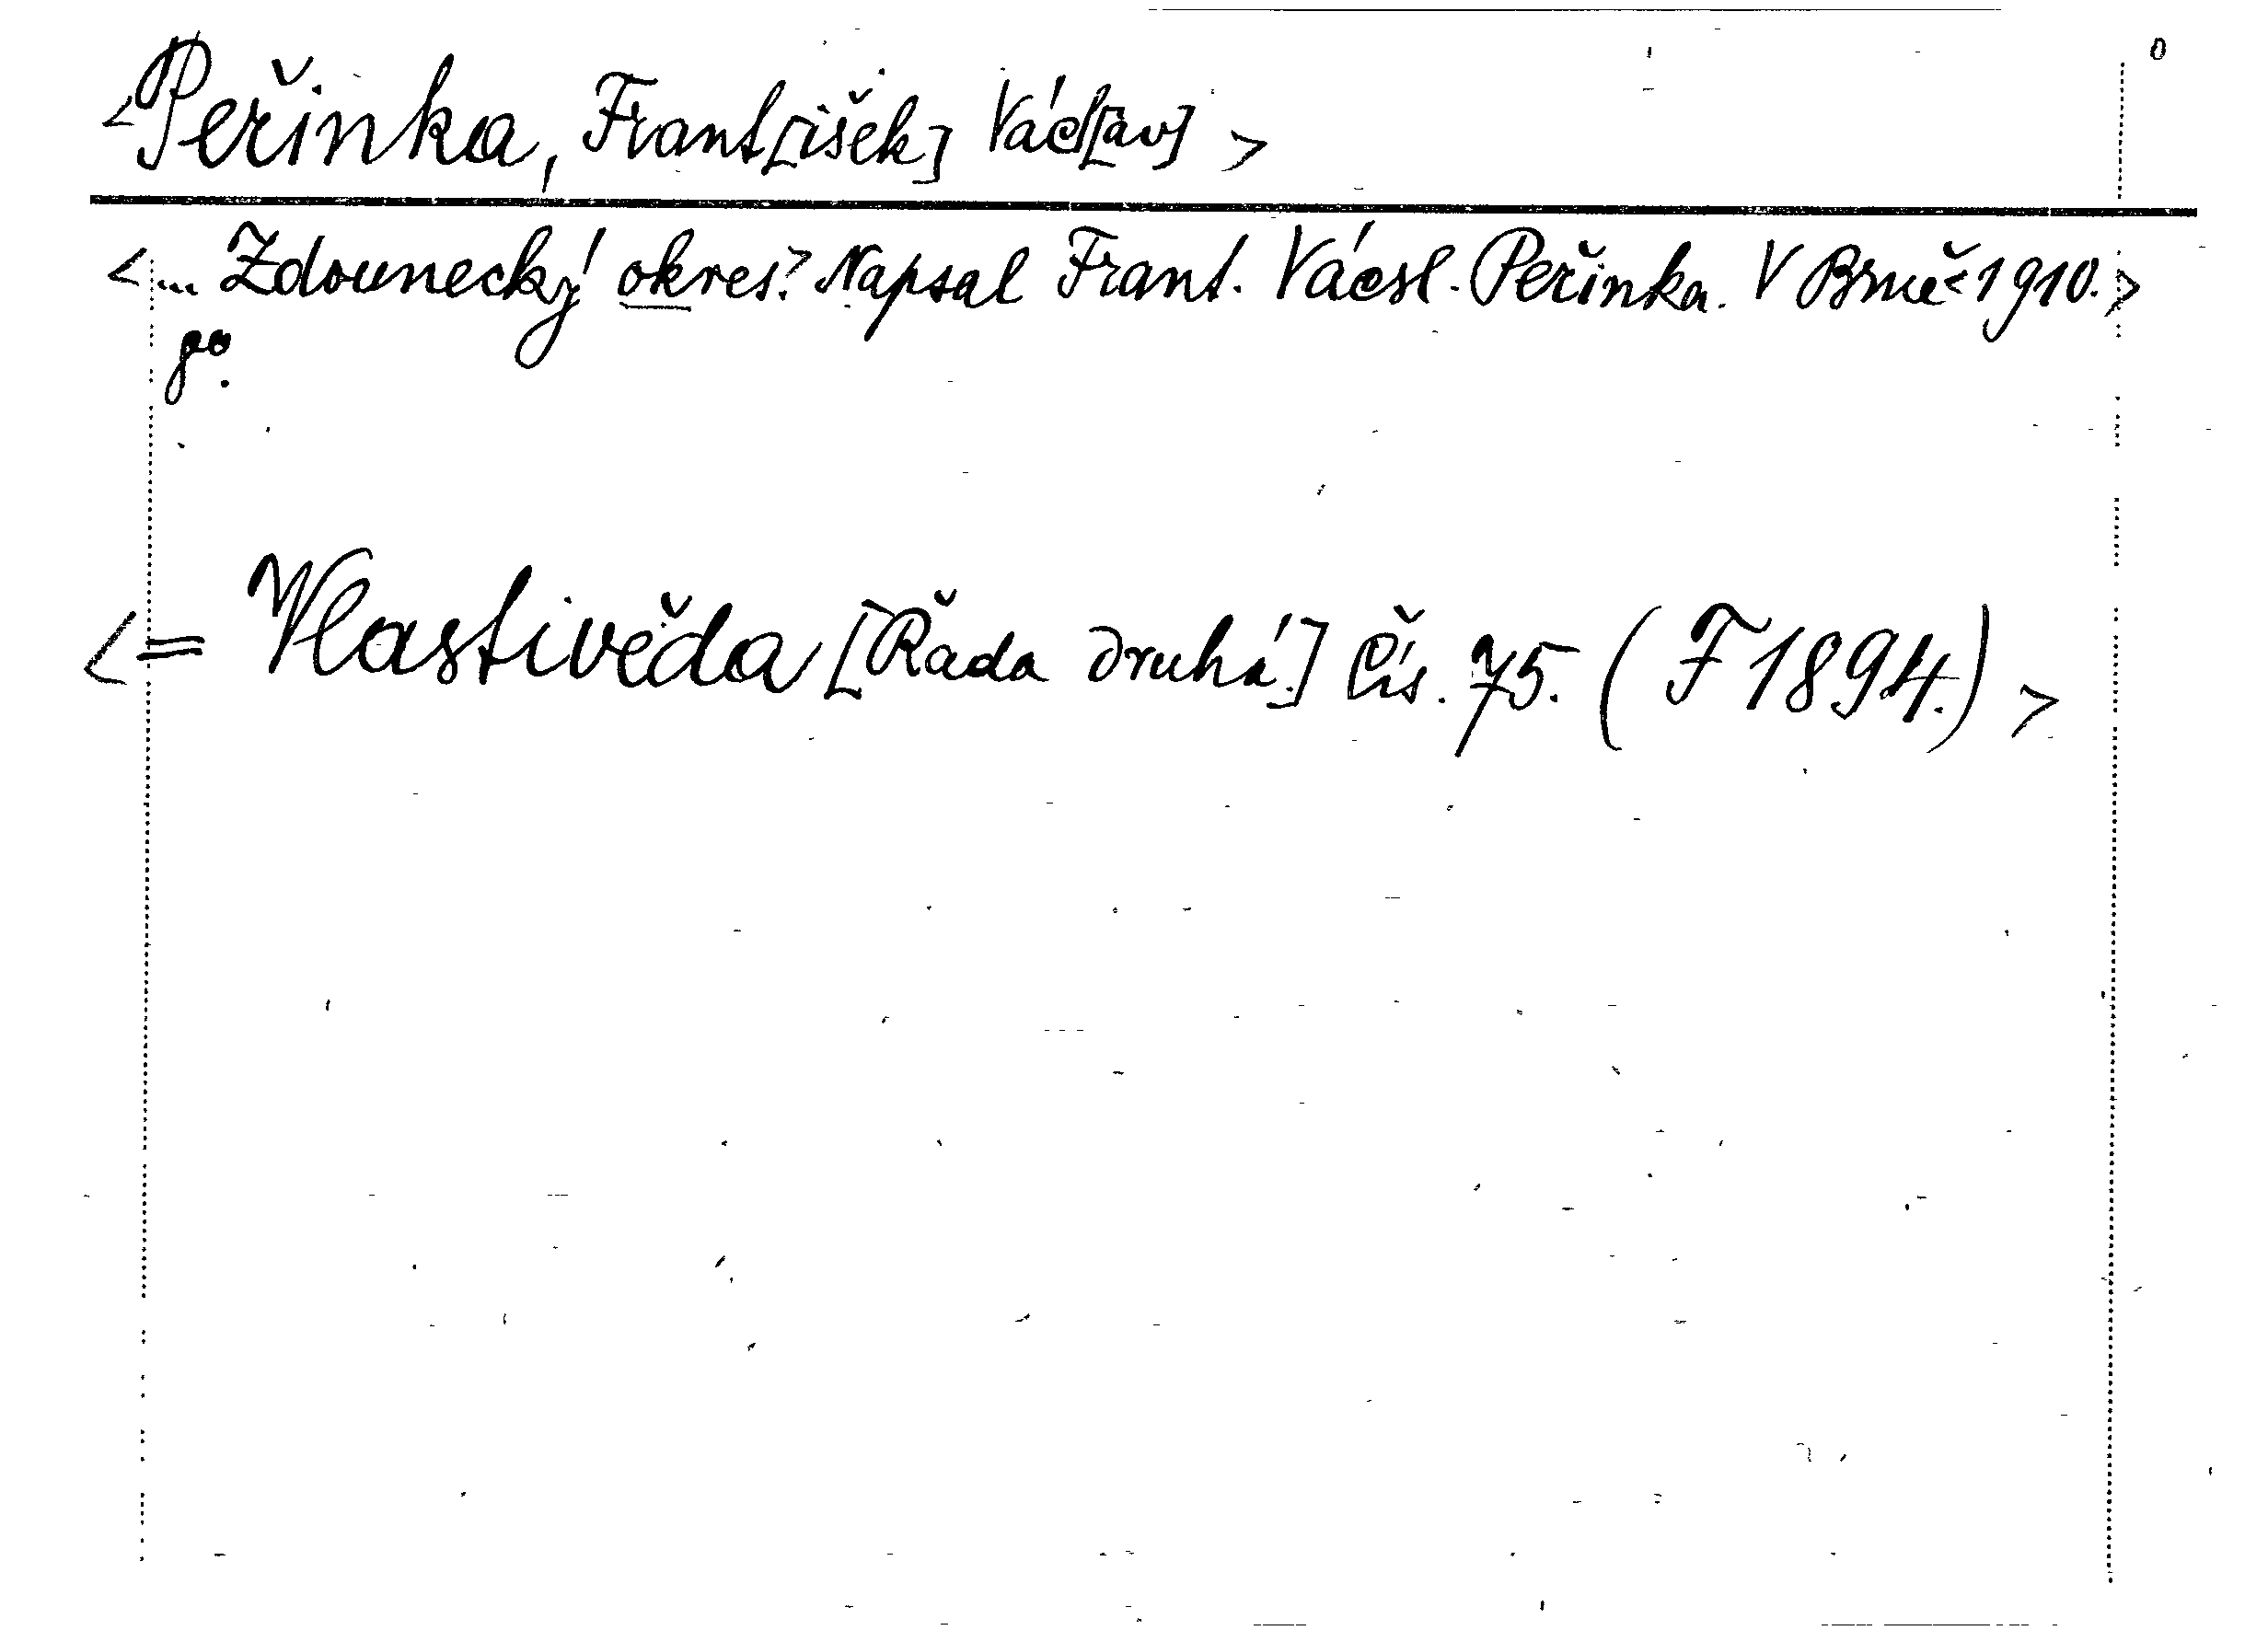 <Peřinka, Frant[išek] Václ[av] >
<... Zdounecký okres? Napsal Frant. Vácsl. Peřinka. V Brně <1910.>
8°.
<= Vlastivěda [Řada druhá.] Čís. 75. (F 1894.) >